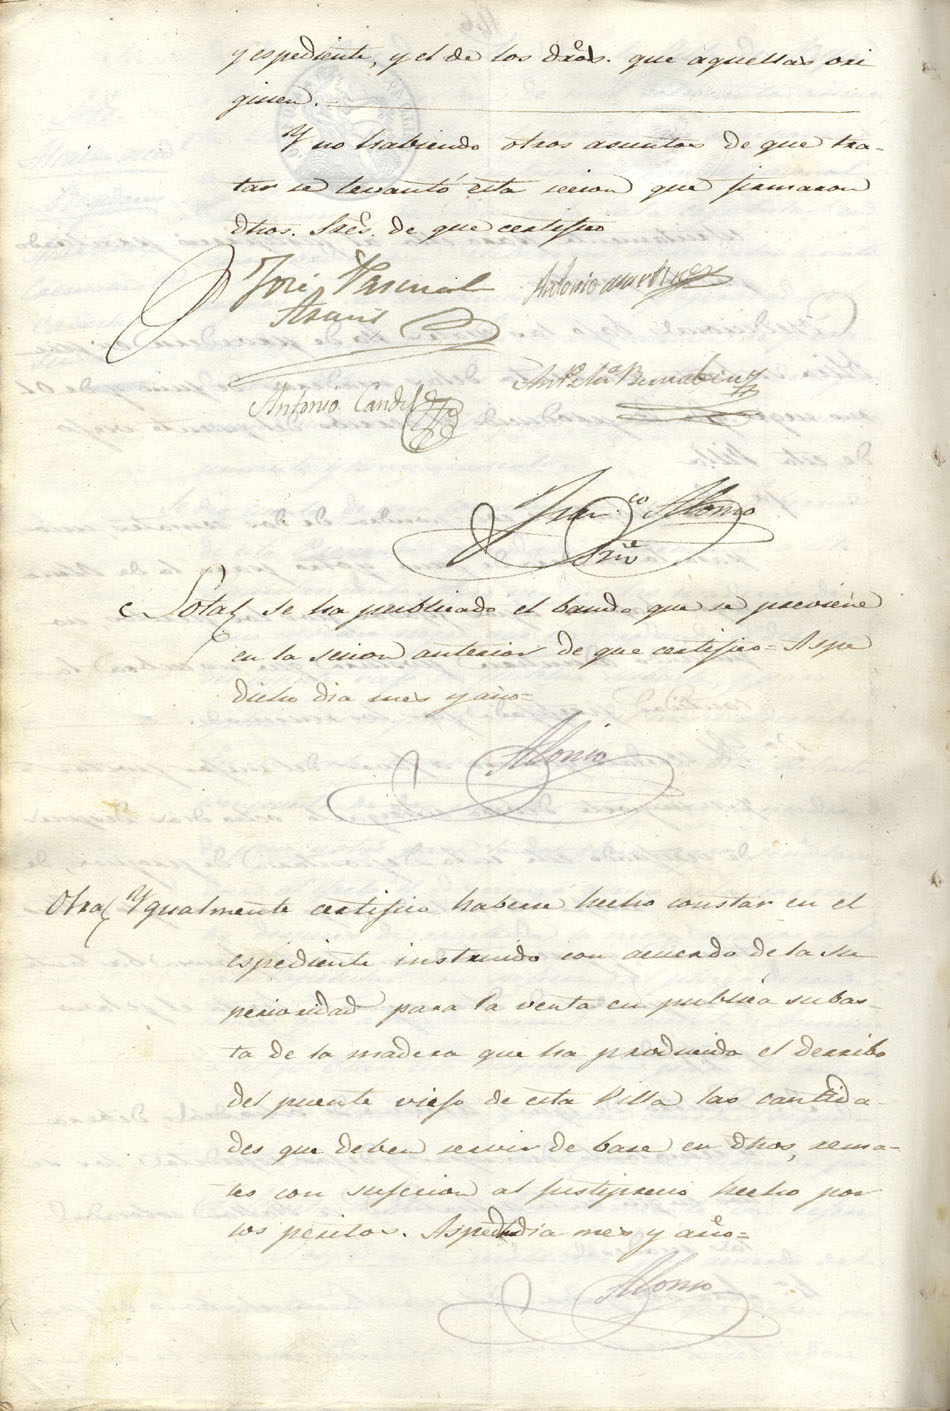 y espediente, y el de los dros. que aquellas ori
ginen.
Y no habiendo otros asuntos de que tra-
tar se levantó esta secion que firmaron
dhos. Sres. de que certifico
José Pascual Antonio Martinez
Antonio Candel Antº Mª Bernabeu
Franco Alonso
Srio
Nota Se ha publicado el bando que se previene
en la sesion anterior de que certifico = Aspe
dicho dia mes y año =
Alonso
Otra Ygualmente certifico haberse hecho constar en el
espediente instruido con acuerdo de la Su
perioridad para la venta en publica subas-
ta de la madera que ha producido el derribo
del puente viejo de esta Villa las cantida-
des que deben servir de base en dhos, rema-
tes con sugecion al justiprecio hecho por
los peritos. Aspe dho dia mes y año =
Alonso